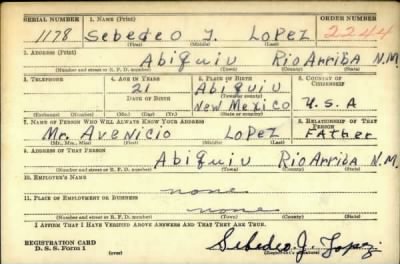 SERIAL NUMBER 1. NAME (Print) ORDER NUMBER
1178 Sebedeo J. Lopez 2244
(First) (Middle) (Last)
2. ADDRESS (Print)
Abiquiu Rio Arriba N.M.
(Number and street or R. F. D. number) (Town) (County) (State)
3. TELEPHONE 4. AGE IN YEARS 5. PLACE OF BIRTH 6. COUNTRY OF CITIZENSHIP
21 Abiquiu
DATE OF BIRTH (Town or county)
New Mexico U.S.A
(Exchange) (Number) (Mo.) (Day) (Yr.) (State or country)
7. NAME OF PERSON WHO WILL ALWAYS KNOW YOUR ADDRESS 8. RELATIONSHIP OF THAT PERSON
Mr. Avenicio Lopez Father
(Mr., Mrs., Miss) (First) (Middle) (Last)
9. ADDRESS OF THAT PERSON
Abiquiu Rio Arriba N.M.
(Number and street or R. F. D. number) (Town) (County) (State)
10. EMPLOYER'S NAME
none
11. PLACE OF EMPLOYMENT OR BUSINESS
none
(Number and street or R. F. D. number) (Town) (County) (State)
I AFFIRM THAT I HAVE VERIFIED ABOVE ANSWERS AND THAT THEY ARE TRUE.
REGISTRATION CARD
D. S. S. Form 1 (over) Sebedeo J. Lopez
(Registrant's signature)